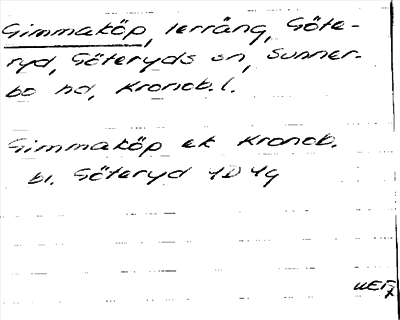 Gimmaköp, terräng, Göte-
ryd, Göteryds sn, Sunner-
bo hd, Kronob. l.
Gimmaköp ek Kronob.
bl. Göteryd 4D 4g